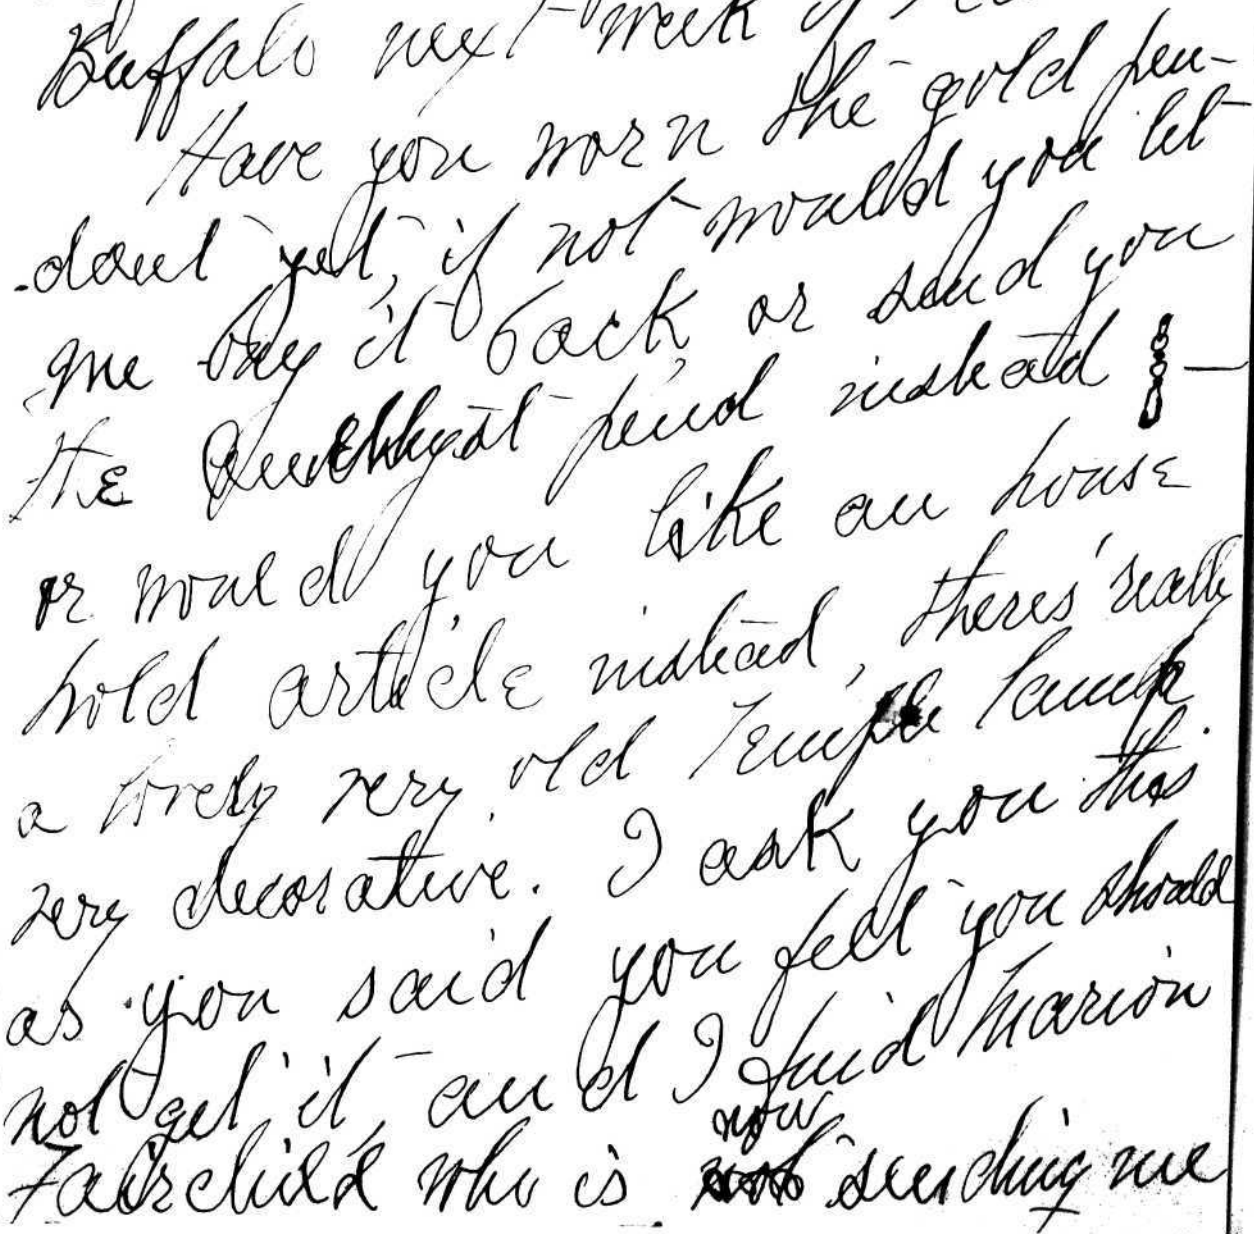 Buffalo next week if I
Have you worn the gold pen-
-dant yet, if not would you let
me buy it back, or send you
the Amethyst pend instead —
or would you like an house
hold article instead, theres' really
a lovely very old Temple lamp
very decorative. I ask you this.
as you said you felt you should
not get it, and I find Marion
now
Fairchild who is sending me